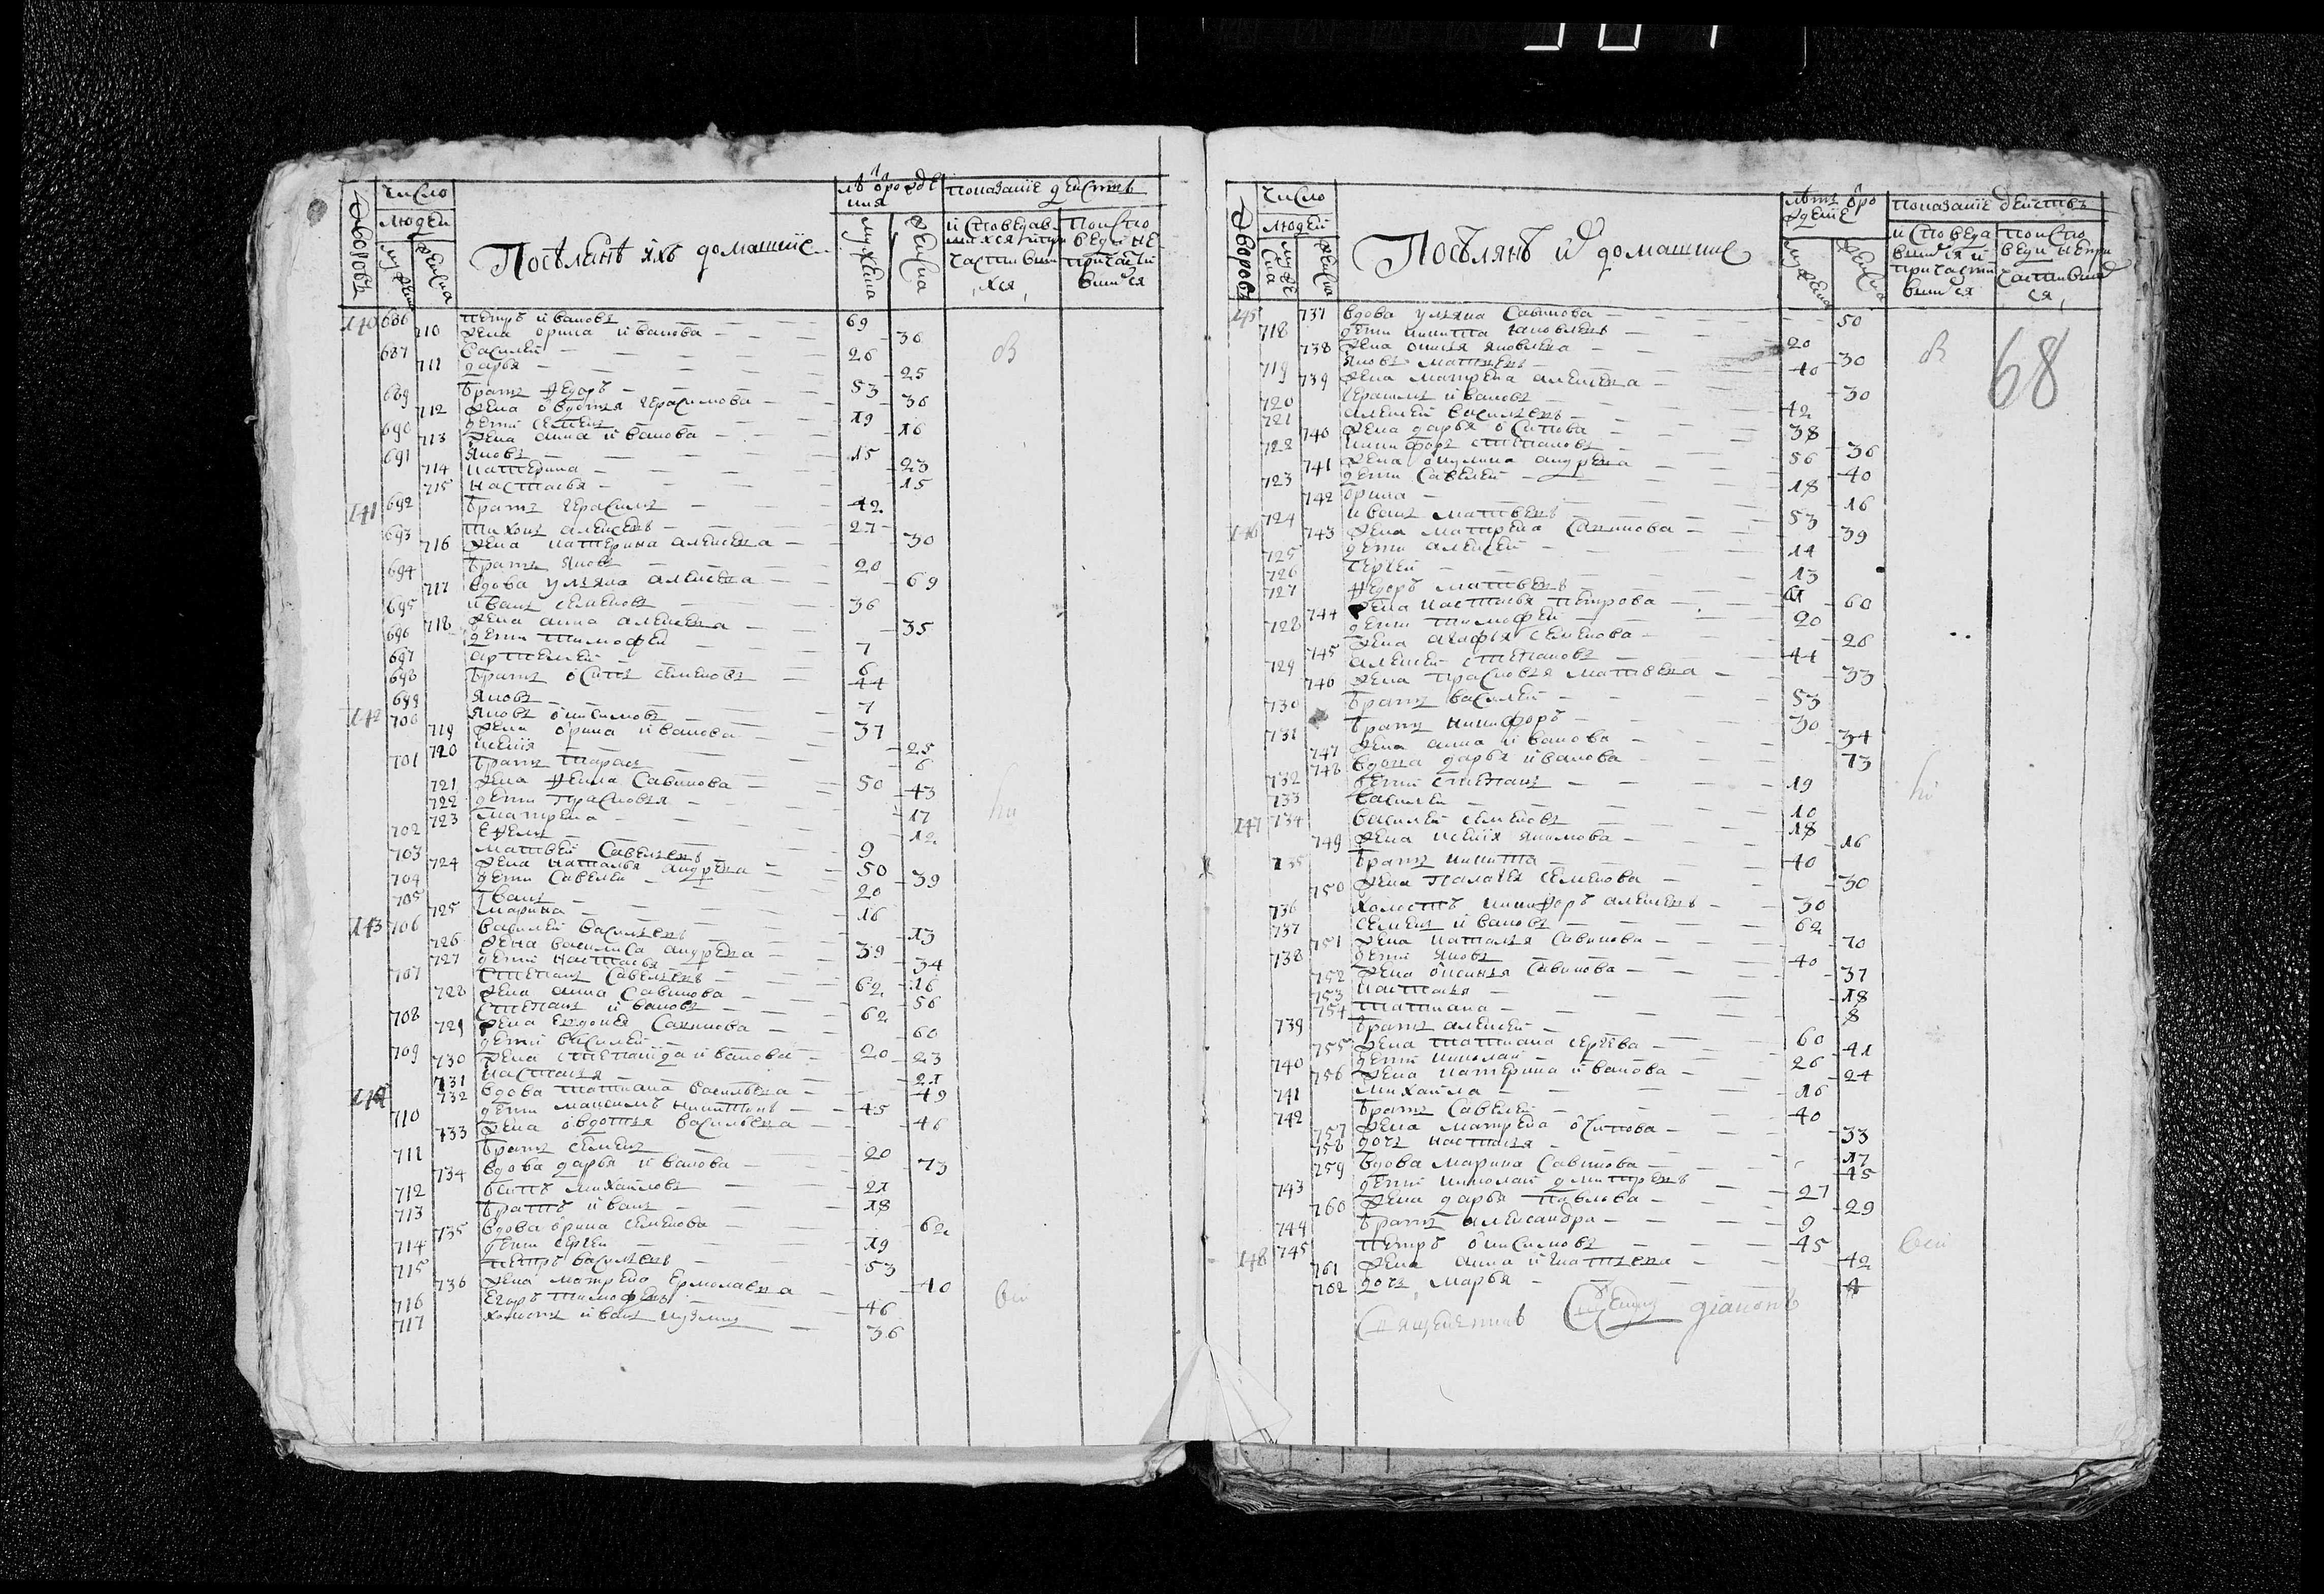 Дворовъ
число
людей
мужска
женска
Посѣлянѣ ихъ домашние
лѣ ѿ рожде
ния
мужска
женска
показанїе действъ
исповедав
шихся и при
частивши
хся
поиспо
веди не
причасти
вшихся
140 686 петръ ивановъ 69
710 жена орина иванова 36
687 василей 26
711 дарья 25
689 братъ федоръ 53
712 жена овдотья герасимова 36
690 дети семенъ 19
713 жена анна иванова 16
691 яковъ 15
714 катерина 23
715 настасья 15
141 692 братъ герасимъ 42
693 тихонъ алексеевъ 27
716 жена катерина алексеева 30
694 братъ яковъ 20
717 вдова ульяна алексеева 69
695 иванъ семеновъ 36
718 жена анна алексеева 35
696 дети тимофей 7
697 артемей 6
698 братъ осипъ семеновъ 44
699 яковъ 7
142 700 яковъ онисимовъ 37
719 жена орина иванова 25
720 ксения 6
701 братъ тарасъ 50
721 жена фекла савинова 43
722 дети прасковья 17
723 матрена 12
702 ефимъ 9
703 матвей савельевъ 50
724 жена наталья андреева 39
704 дети савелей 20
705 иванъ 16
725 марина 13
143 706 василей васильевъ 39
726 жена василиса андреева 34
727 дети настасья 16
707 степанъ савельевъ 62
728 жена анна савинова 56
708 степанъ ивановъ 62
729 жена евдокея савинова 60
709 дети василей 20
730 жена степанида иванова 23
731 настасья 21
144 732 вдова татиана васильева 49
710 дети максимъ никитинъ 45
733 жена овдотья васильева 46
711 братъ семенъ 20
734 вдова дарья иванова 73
712 михайловъ 21
713 братъ иванъ 18
735 вдова орина семенова 62
714 дети сергей 19
715 петръ васильевъ 53
736 жена матрена ермолаева 40
716 егоръ тимофеевъ 46
717 холостъ иванъ кузминъ 36
Дворовъ
число
людей
женска
Посѣлянѣ их домашние
лѣтъ ѿ ро
ждение
показанїе действъ
исповеда
вшихся и
причасти
вшихся
поиспо
веди непри
частивших
ся
68
145 737 вдова ульяна савинова 50
718 дети никита яковлевъ 20
738 жена яковлева 30
719 яковъ матвеевъ 40
739 жена матрена алексеева 30
720 герасимъ ивановъ 42
721 алексей васильевъ 38
740 жена дарья осипова 36
722 никифоръ степановъ 56
741 жена акулина андреева 40
723 дети савелей 18
742 орина 16
724 иванъ матвеевъ 53
146 743 жена матрена савинова 39
725 дети алексей 14
726 сергей 13
727 федоръ матвеевъ 61
744 жена настасья петрова 60
728 дети тимофей 20
745 жена агафья семенова 26
729 алексей степановъ 44
740 жена прасковья матвеева 33
730 братъ василей 53
731 братъ никифоръ 30
747 жена анна иванова 34
748 вдова дарья иванова 73
732 дети степанъ 19
733 василей 10
147 734 василей семеновъ 18
749 жена ксения якимова 16
735 братъ никита 40
750 жена палагея семенова 30
736 холостъ никифоръ алексеевъ 30
737 семенъ ивановъ 62
751 жена наталья савинова 70
738 дети яковъ 40
752 жена оксинья савинова 37
753 настасья 18
754 татиана 8
739 братъ алексей 60
755 жена татиана сергеева 41
740 дети николай 26
756 жена катерина иванова 24
741 михаила 16
742 братъ савелей 40
757 жена матрена осипова 33
758 дочь настасья 17
759 вдова марина савинова 45
743 дети николай дмитревъ 27
760 жена дарья павлова 29
744 братъ александра 9
148 745 петръ онисимовъ 45
761 жена анна игнатьева 42
762 дочь марья 4
Священникъ діаконъ